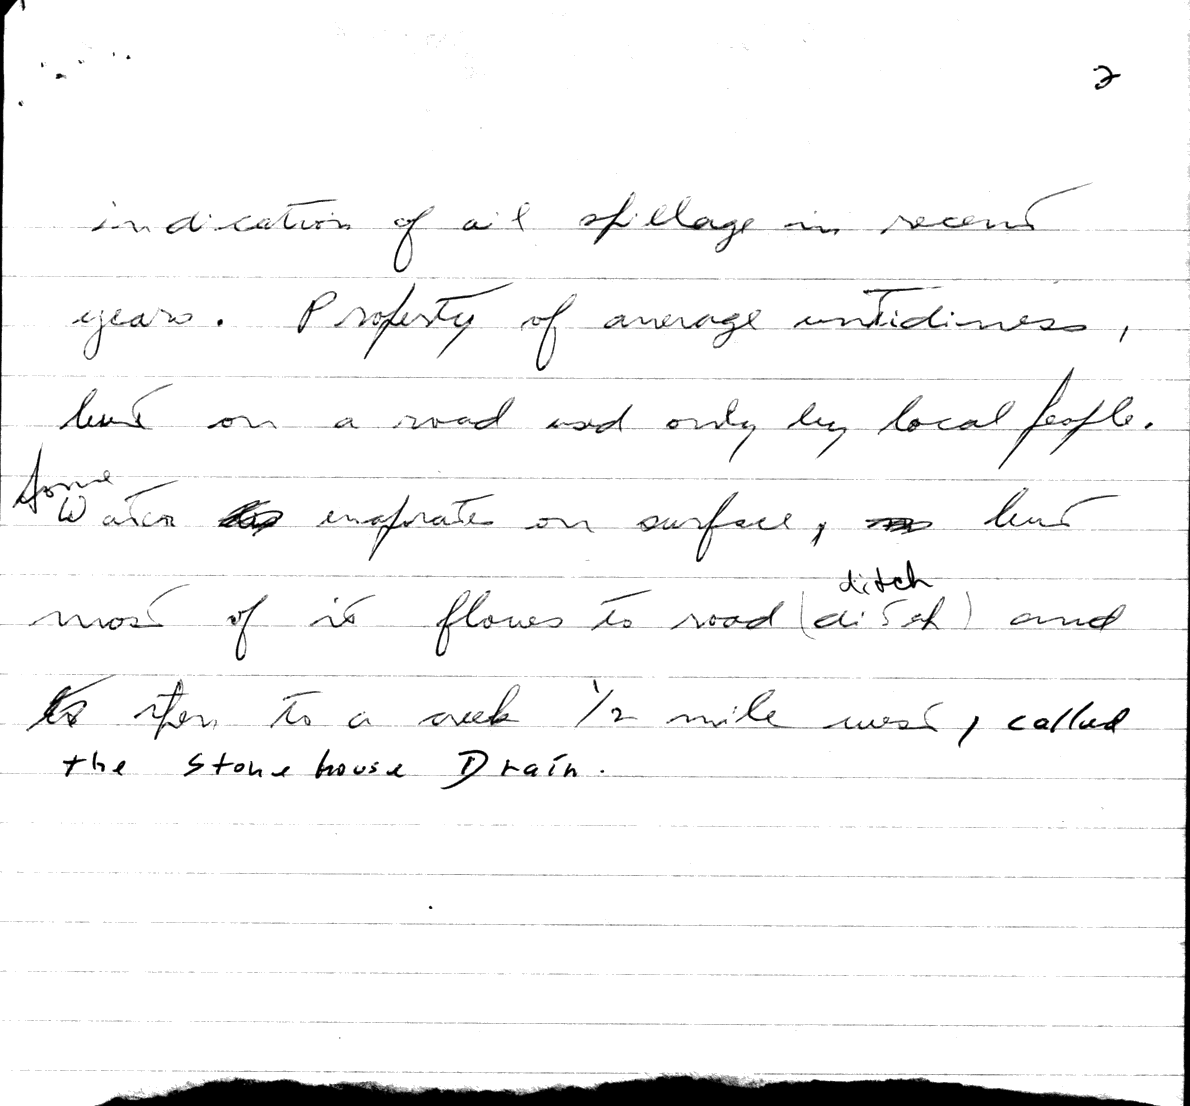 2
indication of oil spillage in recent
years. Property of average untidiness,
but on a road used only by local people.
Some
Water evaporates on surface, but
ditch
most of it flows to road (ditch) and
then to a creek 1/2 mile west, called
the Stonehouse Drain.